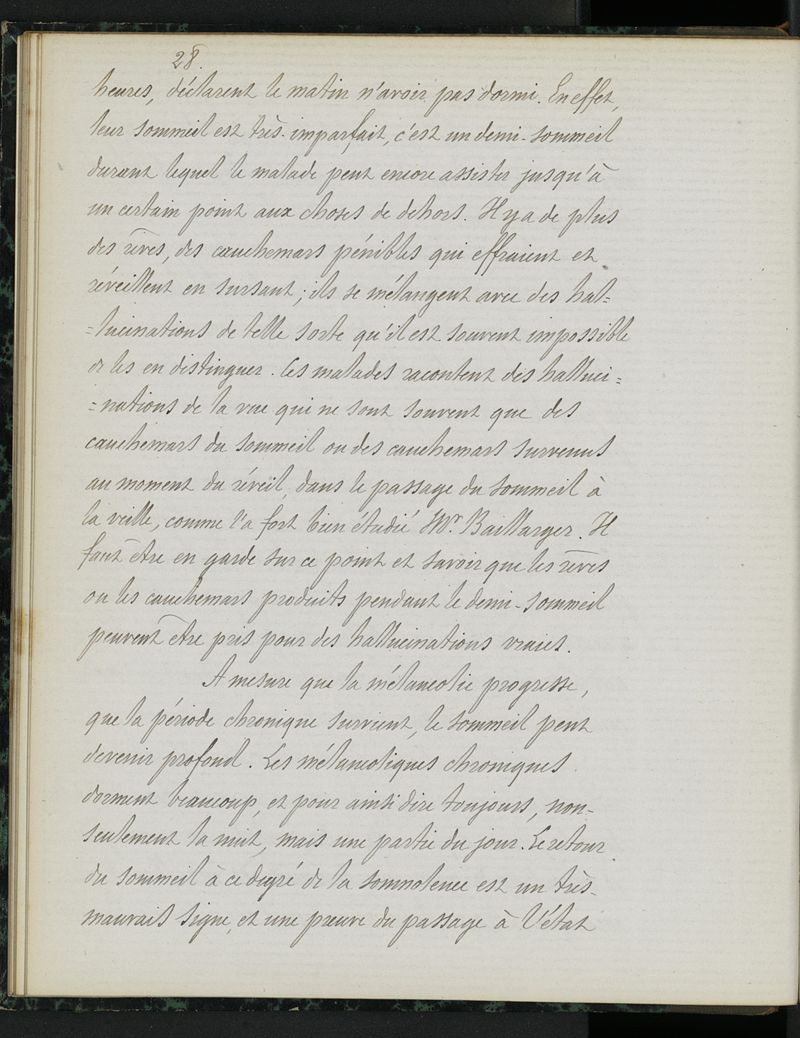 28.
heures, déclarent le matin n'avoir pas dormi. En effet,
leur sommeil est très-imparfait, c'est un demi-sommeil
durant lequel le malade peut encore assister jusqu'à
un certain point aux choses de dehors. Il y a de plus
des rêves, des cauchemars pénibles qui effraient et
réveillent en sursaut ; ils se mélangent avec des hal=
=lucinations de telle sorte qu'il est souvent impossible
de les en distinguer. Ces malades racontent des halluci=
=nations de la vue qui ne sont souvent que des
cauchemars du sommeil ou des cauchemars survenus
au moment du réveil, dans le passage du sommeil à
la veille, comme l'a fort bien étudié Mr. Baillarger. Il
faut être en garde sur ce point et savoir que les rêves
ou les cauchemars produits pendant le demi-sommeil
peuvent être pris pour des hallucinations vraies.
A mesure que la mélancolie progresse,
que la période chronique survient, le sommeil peut
devenir profond. Les mélancoliques chroniques
dorment beaucoup, et pour ainsi dire toujours, non-
seulement la nuit, mais une partie du jour. Le retour
du sommeil à ce degré de la somnolence est un très-
mauvais signe, et une preuve du passage à l'état